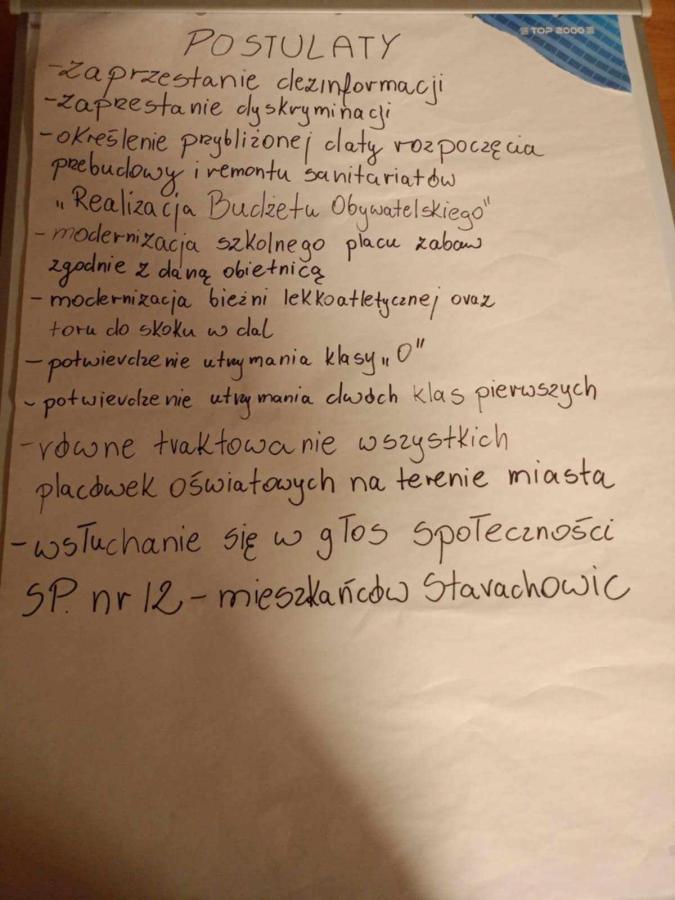 POSTULATY
TOP 2000
- zaprzestanie dezinformacji
- zaprzestanie dyskryminacji
- określenie przybliżonej daty rozpoczęcia
przebudowy i remontu sanitariatów
„Realizacja Budżetu Obywatelskiego"
- modernizacja szkolnego placu zabaw
zgodnie z daną obietnicą
- modernizacja bieżni lekkoatletycznej oraz
toru do skoku w dal
- potwierdzenie utrzymania klasy „O"
- potwierdzenie utrzymania dwóch klas pierwszych
- równe traktowanie wszystkich
placówek oświatowych na terenie miasta
- wsłuchanie się w głos społeczności
SP. nr 12 - mieszkańców Starachowic